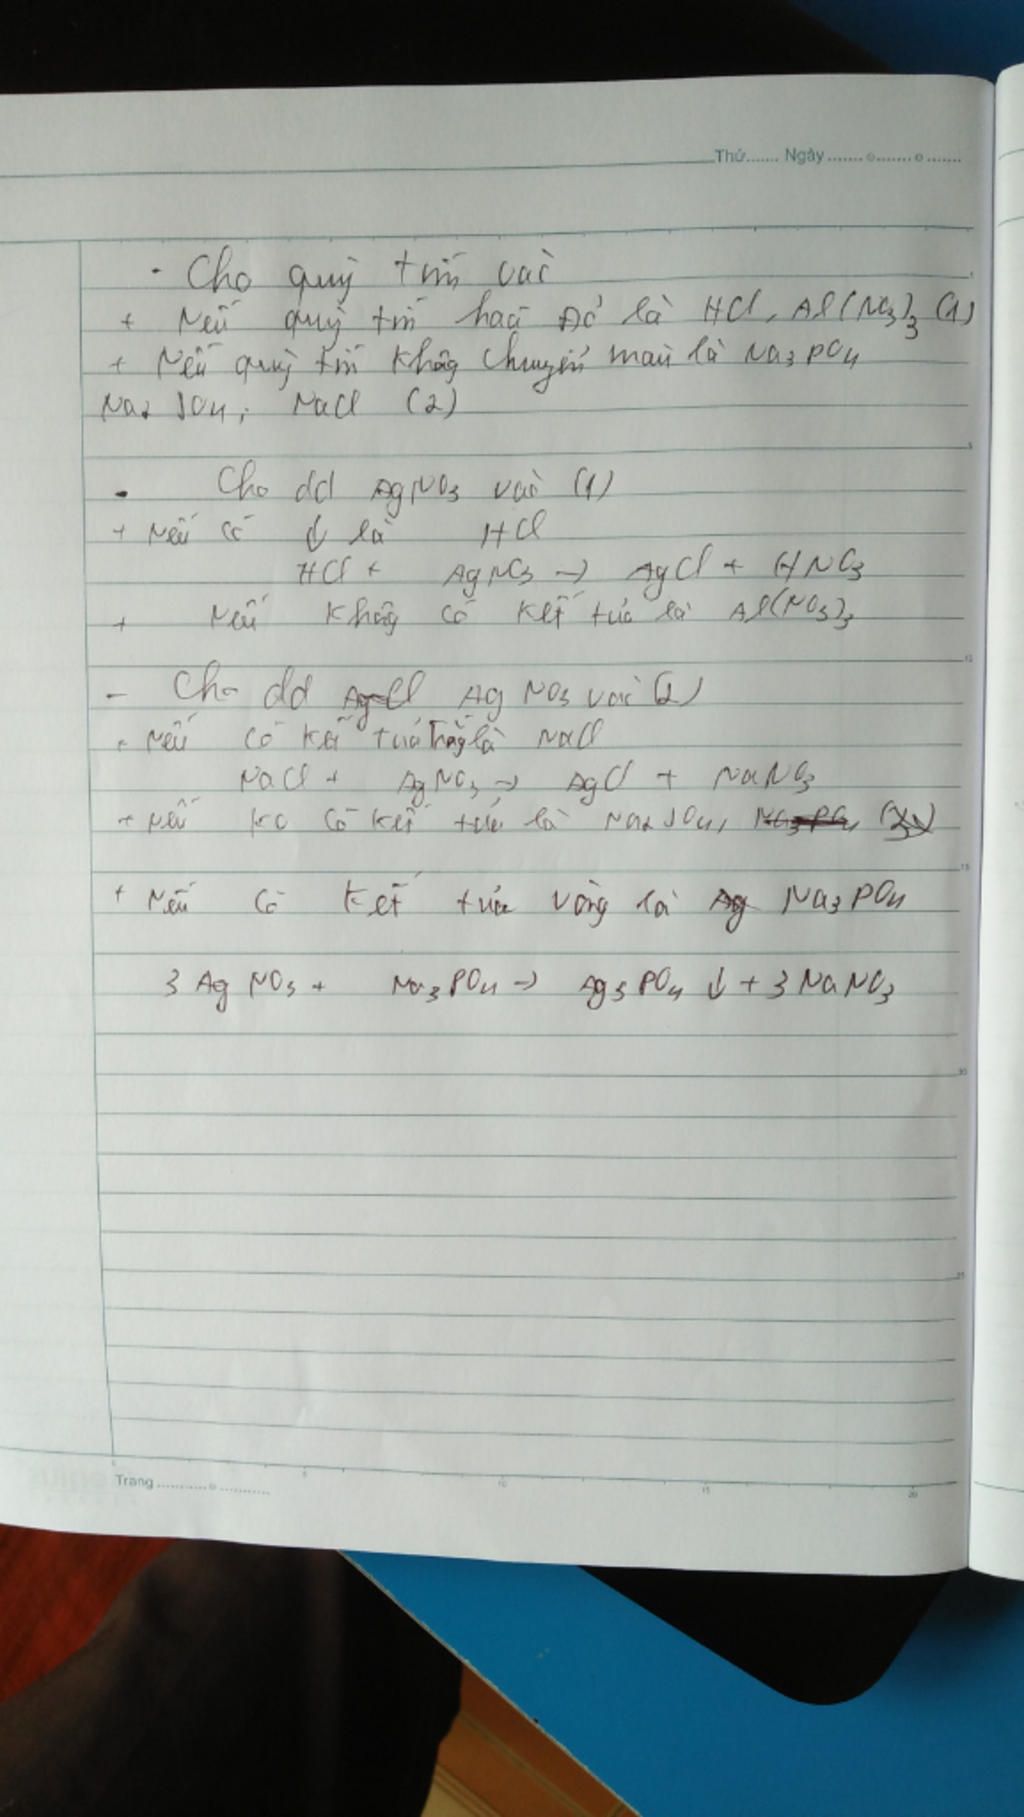 Thứ....... Ngày .......o.......o.......
- Cho quỳ tím vào
+ Nếu quỳ tím hoá Đỏ là HCl, Al(NO3)3 (1)
+ Nếu quỳ tím không chuyển màu là Na3PO4
Na2SO4, NaCl (2)
- Cho dd AgNO3 vào (1)
+ Nếu có ↓ là HCl
HCl + AgNO3 → AgCl + HNO3
+ Nếu không có kết tủa là Al(NO3)3
- Cho dd AgCl AgNO3 vào (2)
+ Nếu có kết tủa trắng là NaCl
NaCl + AgNO3 → AgCl + NaNO3
+ Nếu ko có kết tủa là Na2SO4, Na3PO4
+ Nếu có kết tủa vàng là Ag Na3PO4
3 AgNO3 + Na3PO4 → Ag3PO4 ↓ + 3 NaNO3
Trang ...........o...........
5 10 15 20